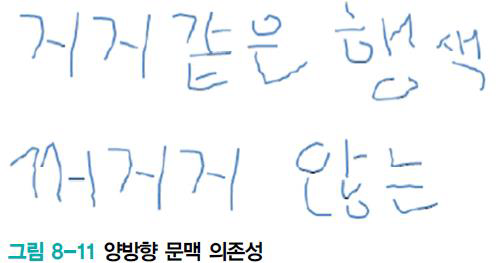 거지같은 행색
꺼지지 않는
그림 8-11 양방향 문맥 의존성